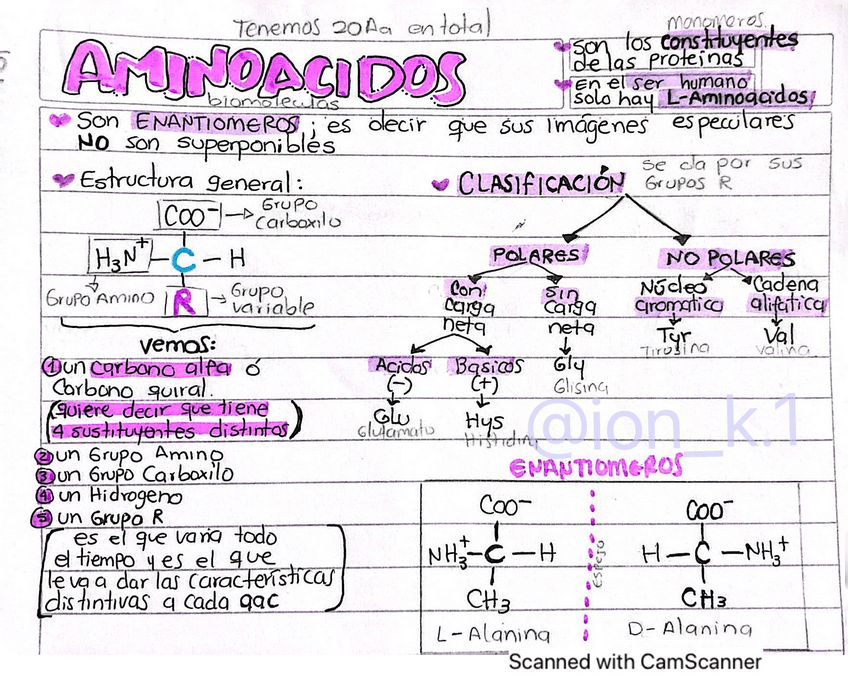 Tenemos 20Aa en total
AMINOACIDOS
biomoleculas
monomeros.
Son los constituyentes
de las proteinas
en el ser humano
solo hay L-Aminoacidos
Son ENANTIOMEROS; es decir que sus imágenes especulares
NO son superponibles
Estructura general:
COO⁻ → Grupo
Carboxilo
H₃N⁺ — C — H
Grupo Amino
R → Grupo
variable
vemos:
① un carbono alfa ó
Carbono quiral.
(quiere decir que tiene
4 sustituyentes distintos)
② un Grupo Amino
③ un Grupo Carboxilo
④ un Hidrogeno
⑤ un Grupo R
es el que varia todo
el tiempo y es el que
le va a dar las características
distintivas a cada aac
CLASIFICACIÓN
se da por sus
Grupos R
POLARES
NO POLARES
Con
carga
neta
sin
carga
neta
Núcleo
aromatico
Cadena
alifatica
Acidos
(-)
Basicos
(+)
Gly
Glisina
Tyr
Tirosina
Val
valina
Glu
Glutamato
Hys
Histidin
@ion_k.1
ENANTIOMEROS
COO⁻
NH₃⁺ — C — H
CH₃
L-Alanina
ESPEJO
COO⁻
H — C — NH₃⁺
CH₃
D-Alanina
Scanned with CamScanner